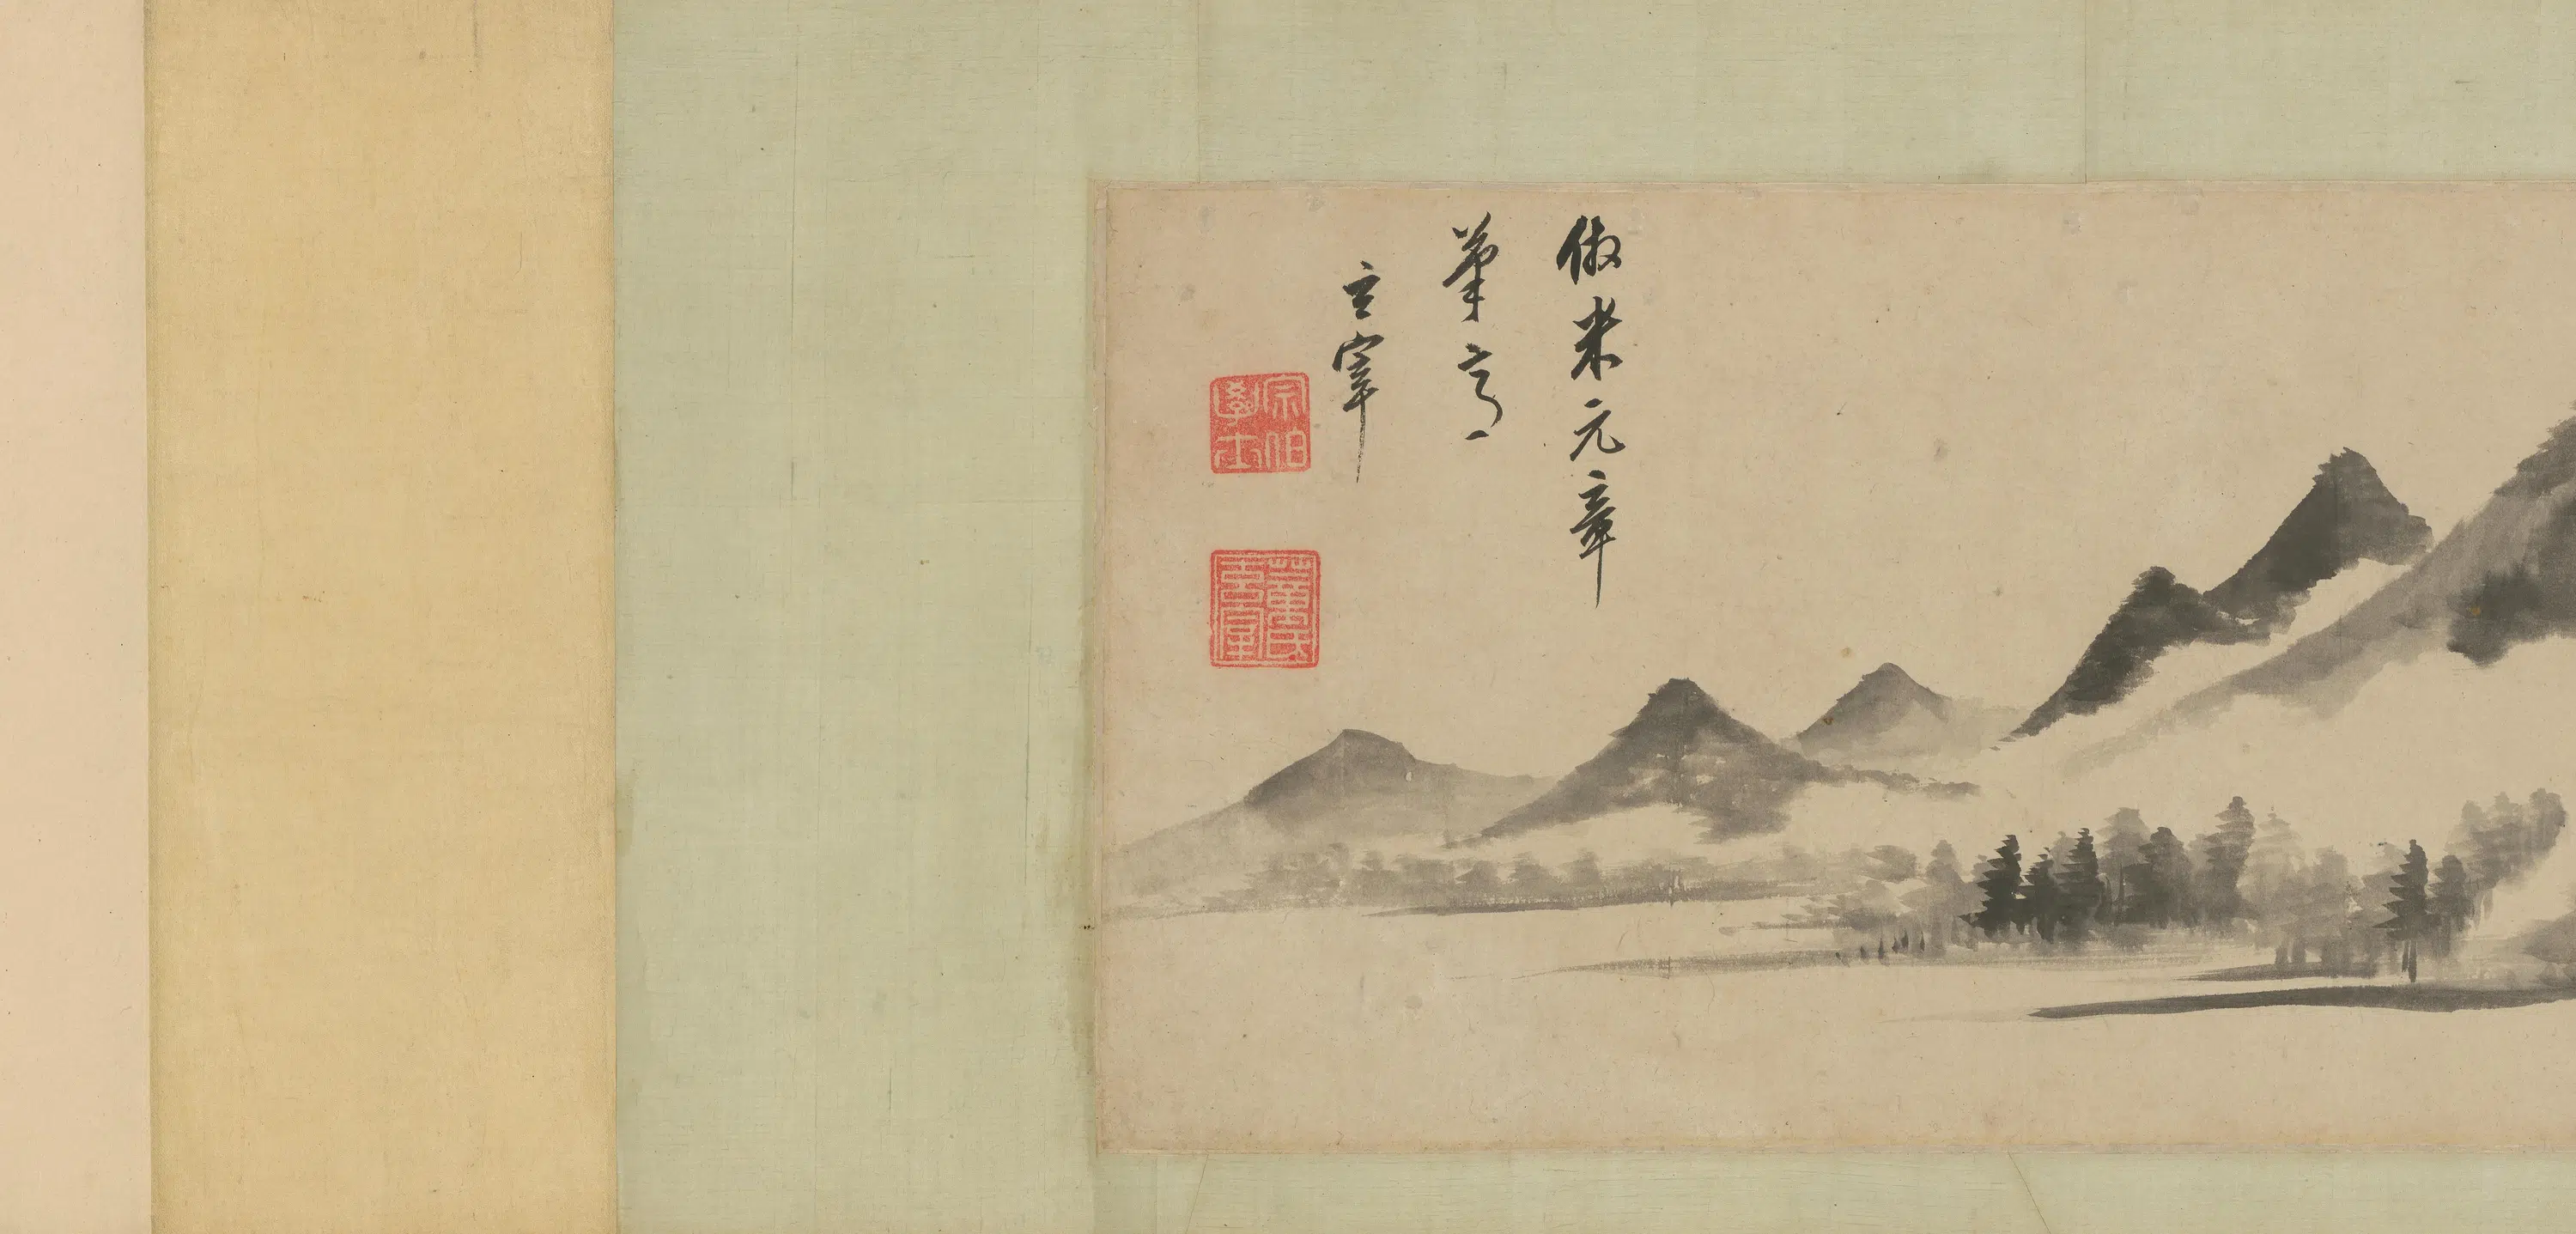 倣米元章
筆意
玄宰
宗伯學士
董氏玄宰